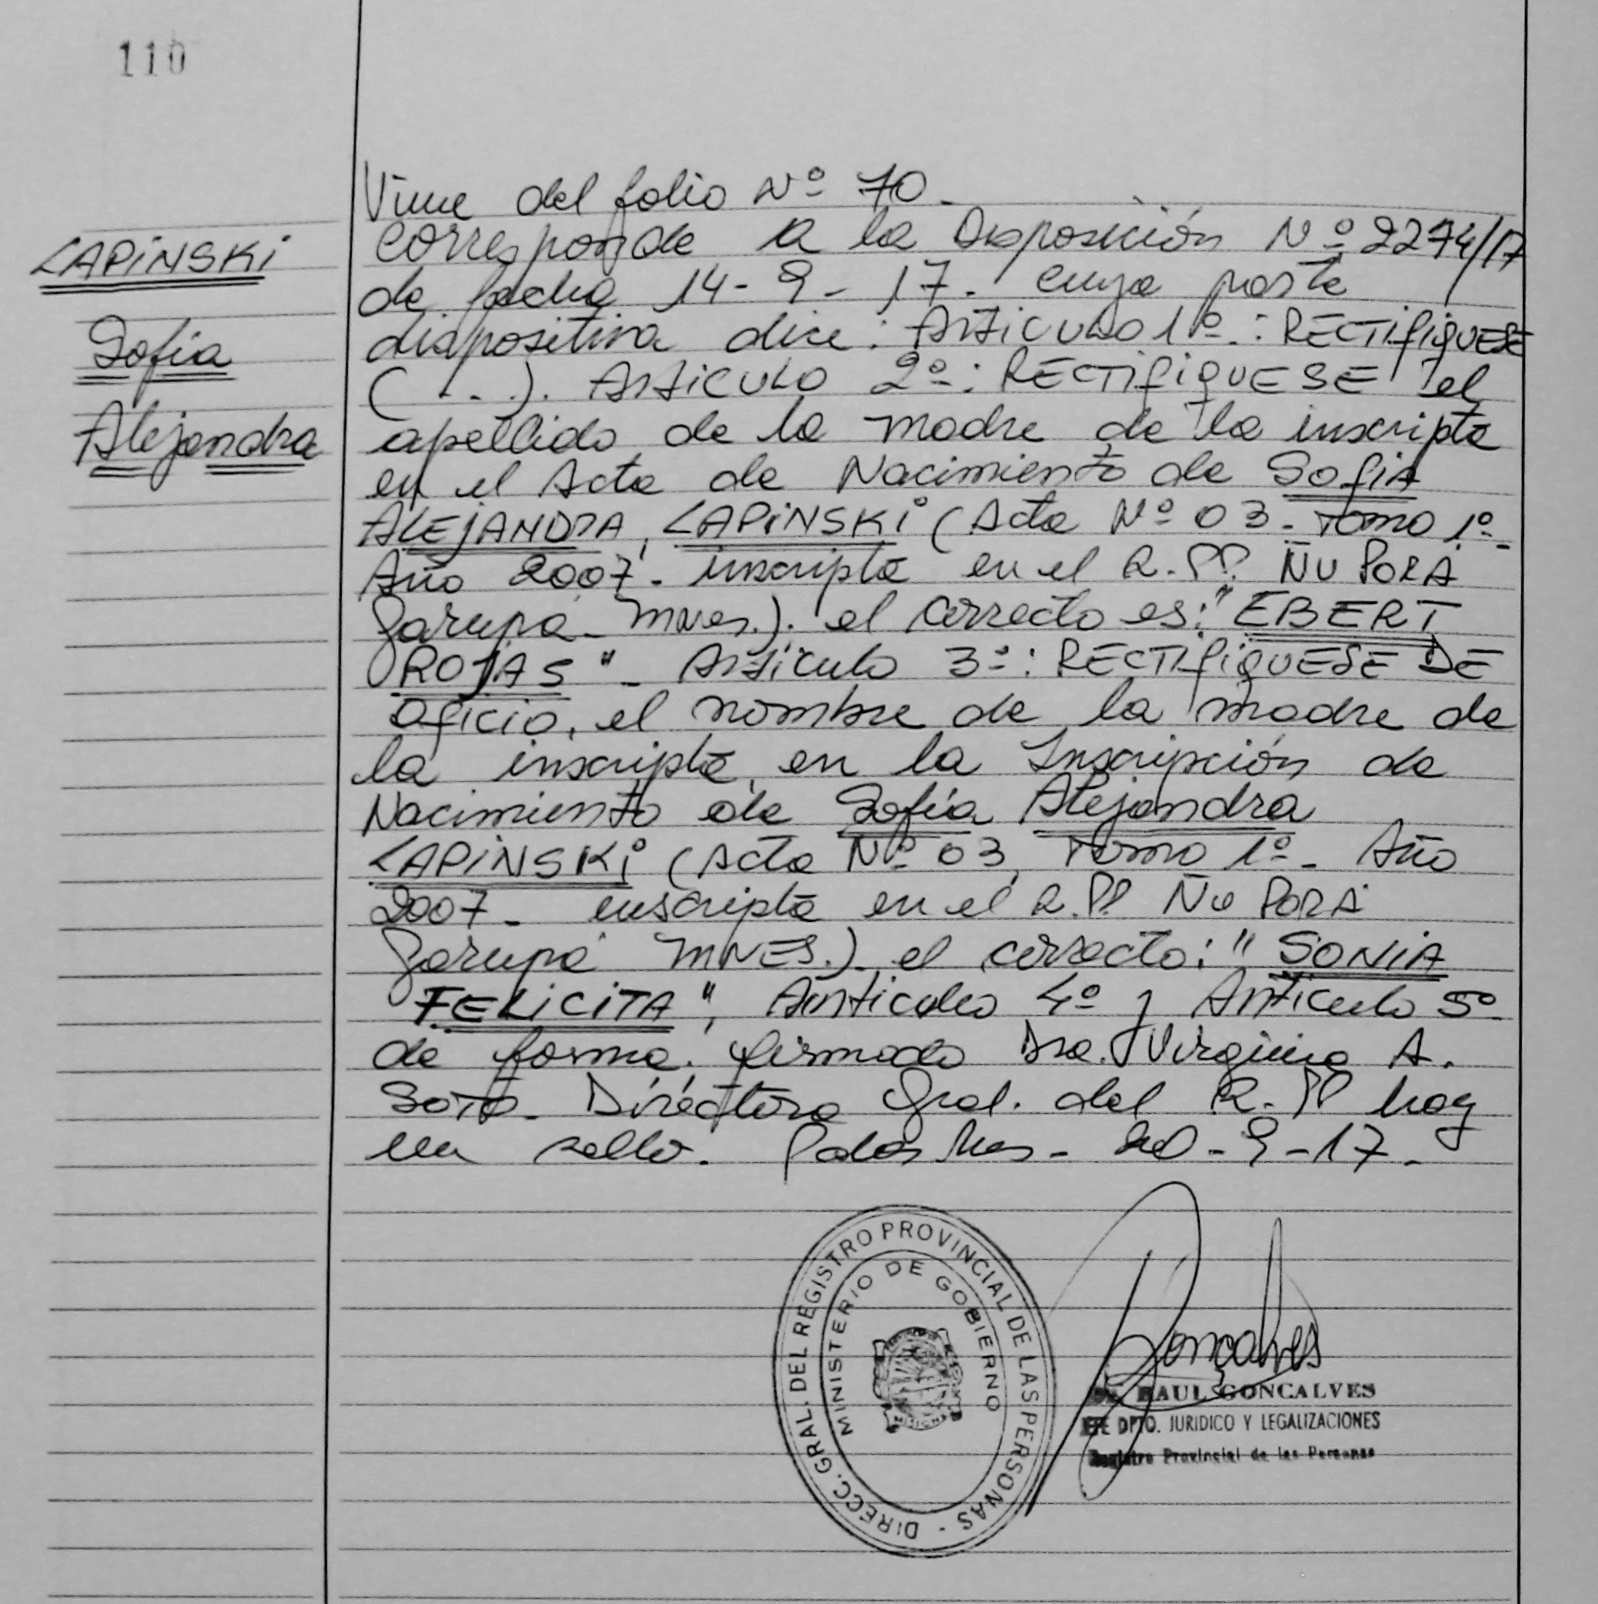 110
LAPINSKI
Sofia
Alejandra
Viene del folio Nº 70.
Corresponde a la Disposición Nº 2274/17
de fecha 14-9-17. cuya parte
dispositiva dice: Articulo 1º: RECTIFIQUESE
(...). Articulo 2º: RECTIFIQUESE el
apellido de la madre de la inscripta
en el Acta de Nacimiento de SOFIA
ALEJANDRA, LAPINSKI (Acta Nº 03 - Tomo 1º-
Año 2007 - inscripta en el R.PP. ÑU PORA
Garupa - Mnes.). el correcto es: "EBERT
ROJAS" - Articulo 3º: RECTIFIQUESE DE
Oficio, el nombre de la madre de
la inscripta, en la Inscripción de
Nacimiento de Sofia Alejandra
LAPINSKI (Acta Nº 03, Tomo 1º- Año
2007 - inscripta en el R.PP. ÑU PORA
Garupa MNES.). el correcto: "SONIA
FELICITA", Articulo 4º y Articulo 5º
de forma. firmado Dra. Virginia A.
SOTO. Directora Gral. del R.PP hay
un sello. Pdas Mnes - 20-9-17.
DIRECC. GRAL. DEL REGISTRO PROVINCIAL DE LAS PERSONAS -
MINISTERIO DE GOBIERNO
Goncalves
RAUL GONCALVES
JEFE DPTO. JURIDICO Y LEGALIZACIONES
Registro Provincial de las Personas